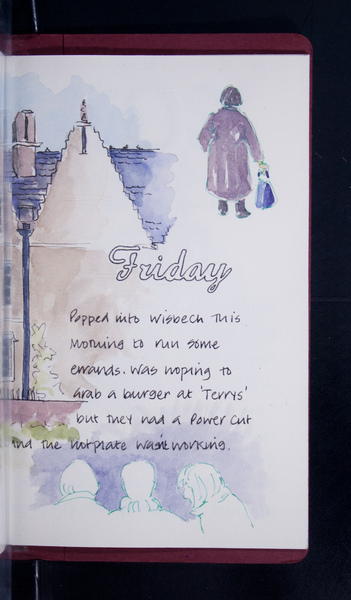 Friday
Popped into Wisbech This
Morning to run some
errands. Was hoping to
grab a burger at 'Terrys'
but They had a Power cut
and The hotplate wasn't working.